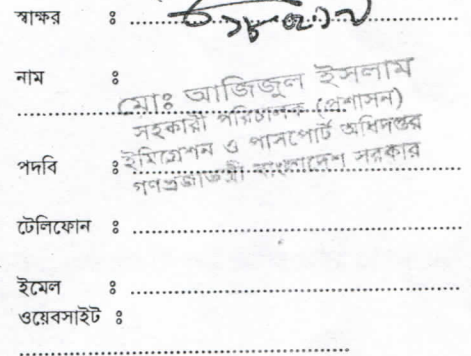 স্বাক্ষর :
নাম :
মোঃ আজিজুল ইসলাম
সহকারী পরিচালক (প্রশাসন)
পদবি : ইমিগ্রেশন ও পাসপোর্ট অধিদপ্তর
গণপ্রজাতন্ত্রী বাংলাদেশ সরকার
টেলিফোন :
ইমেল :
ওয়েবসাইট :